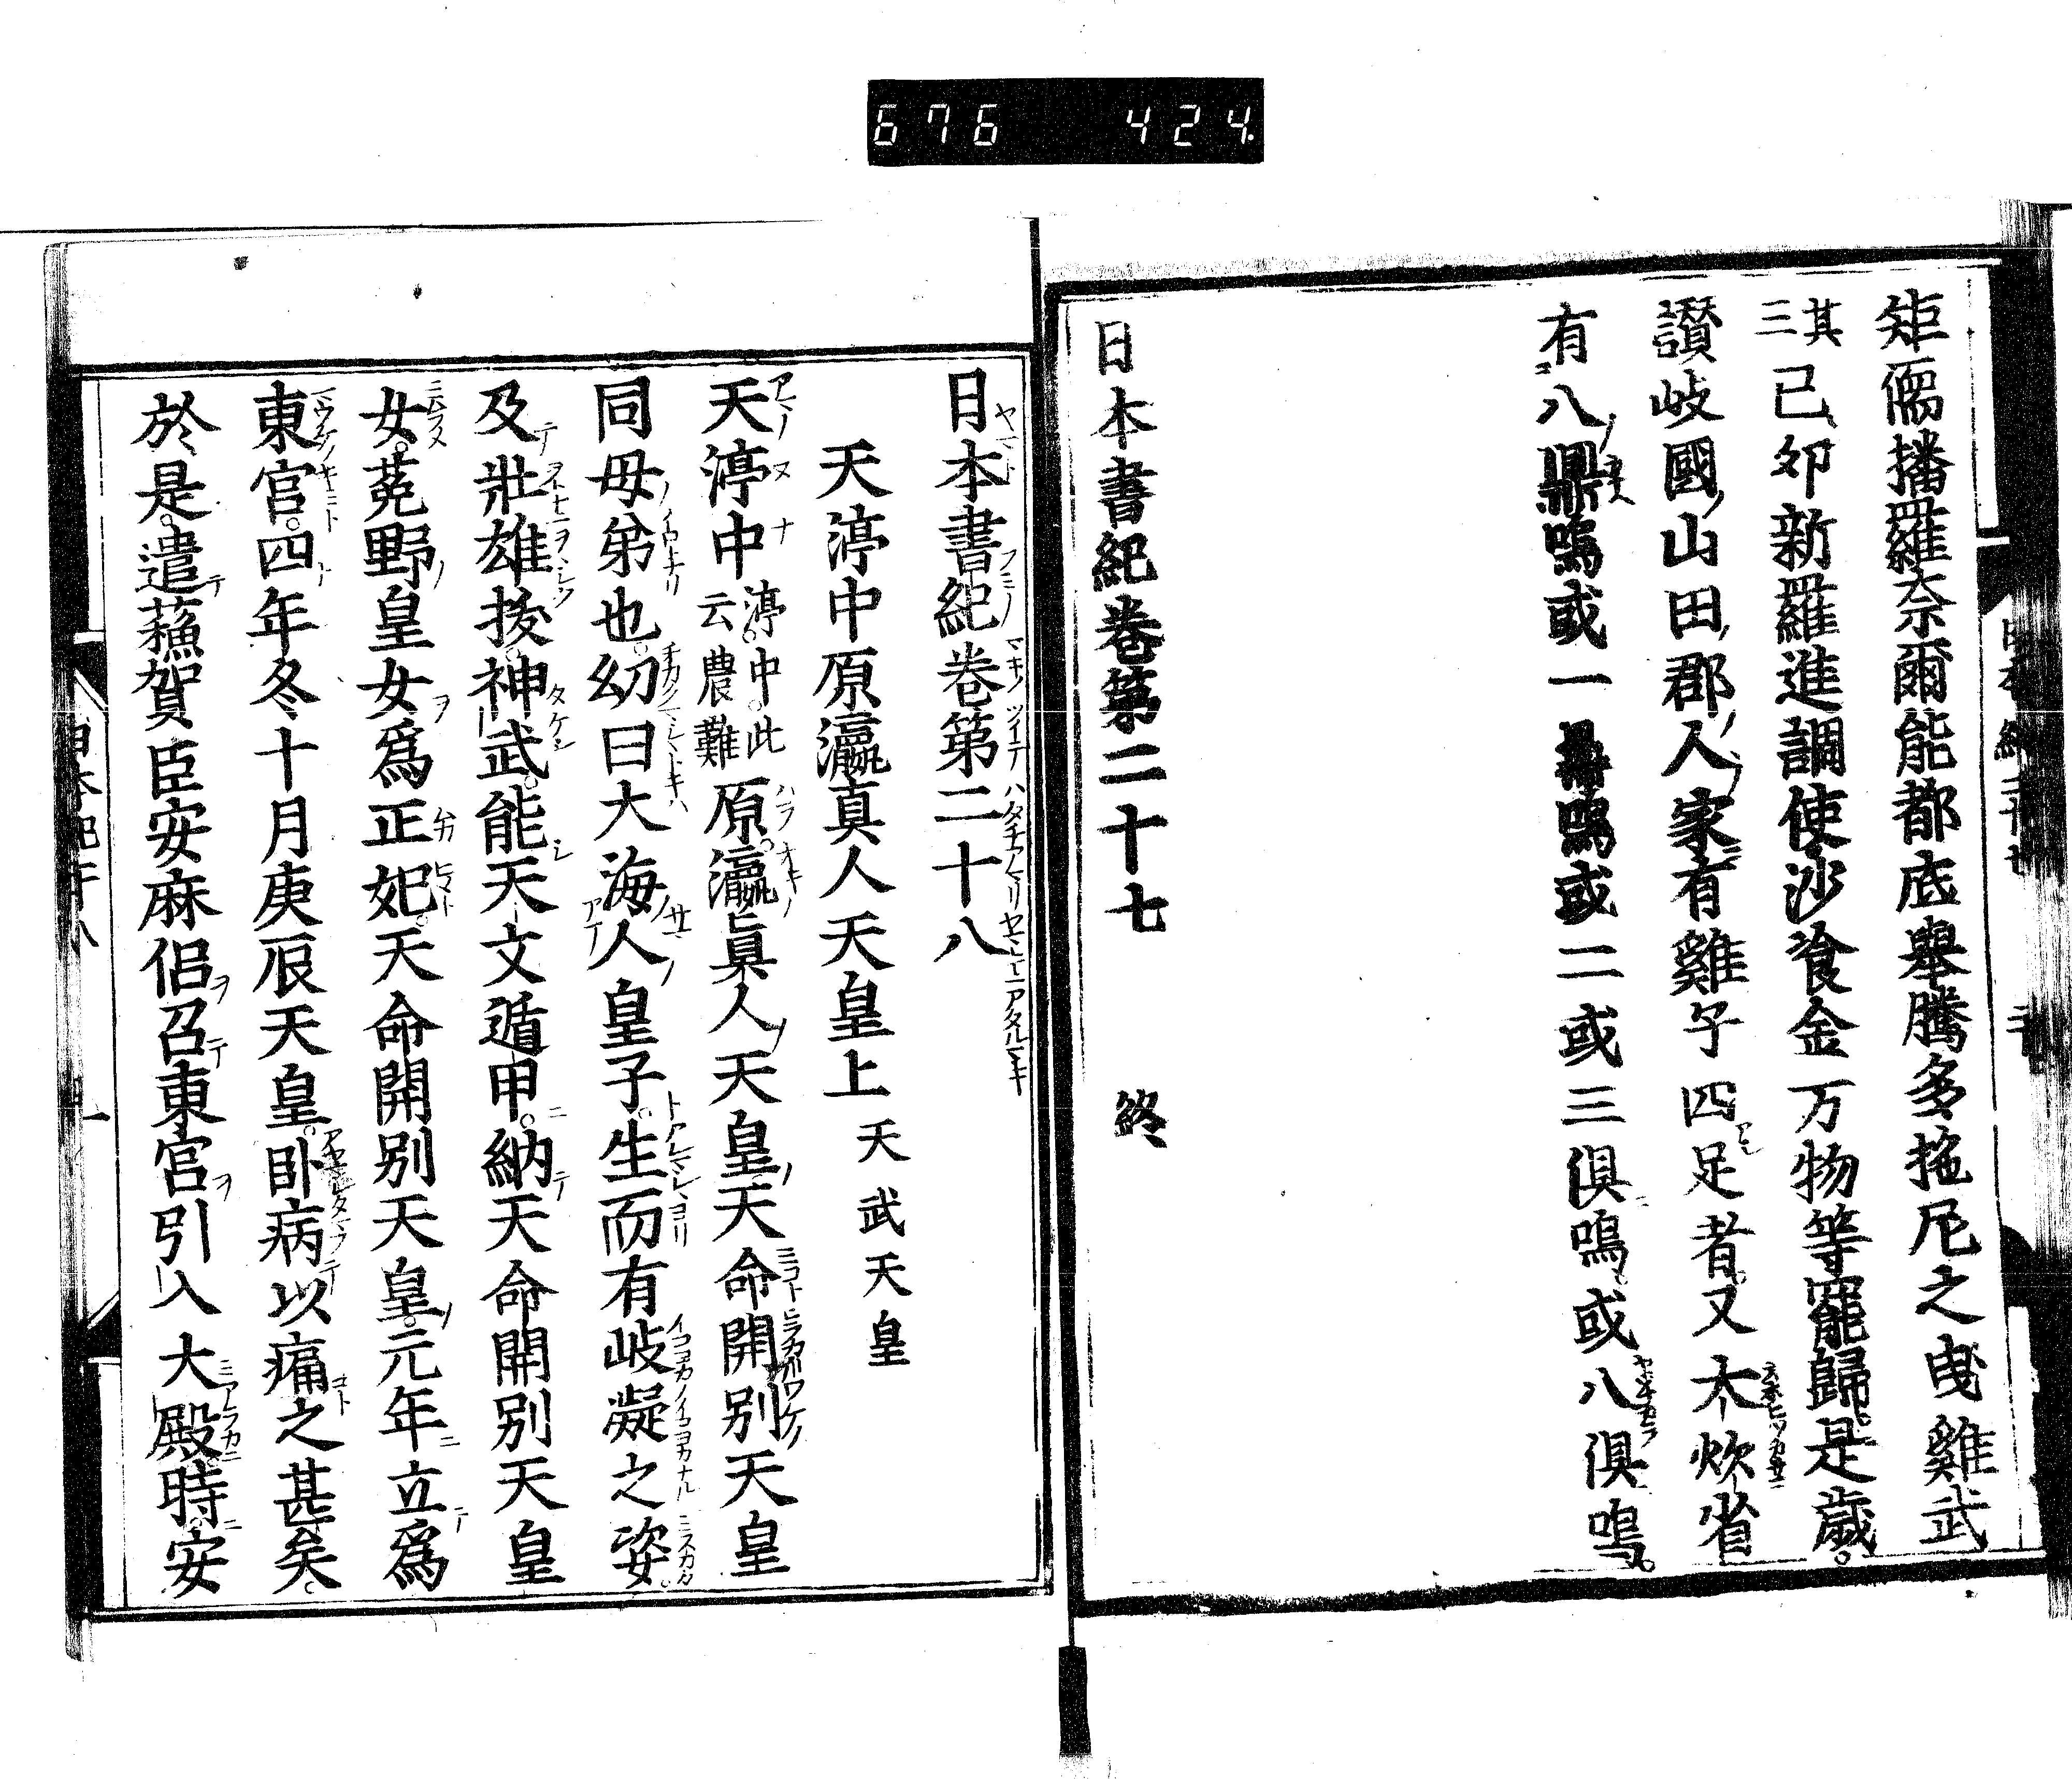 676 424
矩儒播羅奈爾能都底擧騰多拖尼之曳雞武
其三已夘新羅進調使沙飡金万物等罷歸是歲
讃岐國山田郡人家有雞子四足者又大炊省
有八鼎鳴或一鼎鳴或二或三俱鳴或八俱鳴
日本書紀卷第二十七 終
日本書紀卷第二十八
天渟中原瀛真人天皇上 天武天皇
天渟中渟中此云農難原瀛真人天皇天命開別天皇
同母弟也幼曰大海人皇子生而有岐嶷之姿
及壯雄拔神武能天文遁甲納天命開別天皇
女菟野皇女爲正妃天命開別天皇元年立爲
東宮四年冬十月庚辰天皇臥病以痛之甚矣
於是遣蘓賀臣安麻侶召東宮引入大殿時安